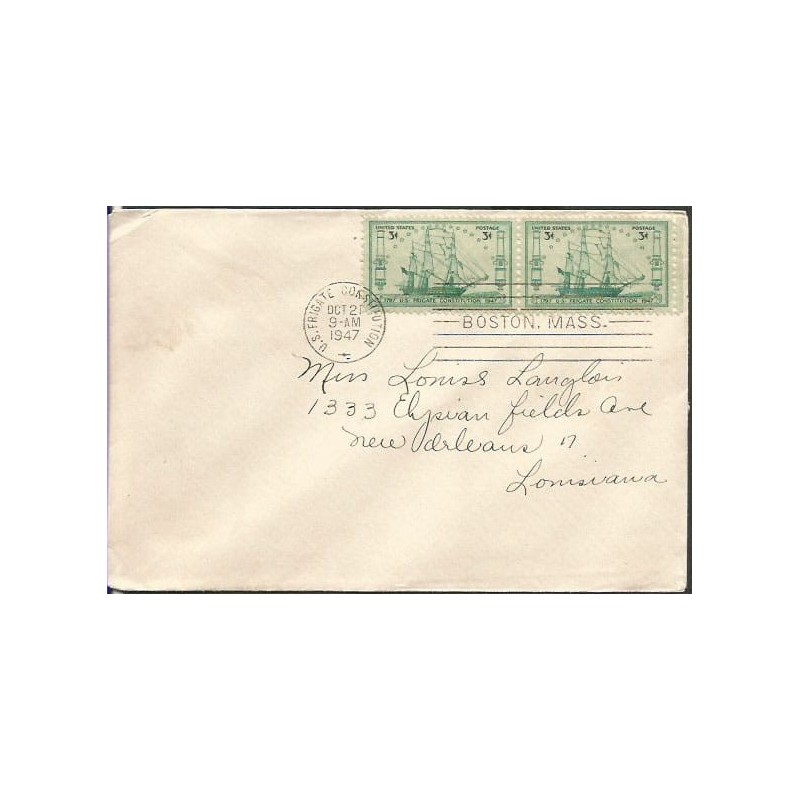 UNITED STATES POSTAGE
3¢ 3¢
1797 U.S. FRIGATE CONSTITUTION 1947
UNITED STATES POSTAGE
3¢ 3¢
1797 U.S. FRIGATE CONSTITUTION 1947
U.S. FRIGATE CONSTITUTION
OCT 21
9-AM
1947
BOSTON, MASS.
Miss Louise Langlois
1333 Elysian fields Ave
New Orleans 17
Louisiana